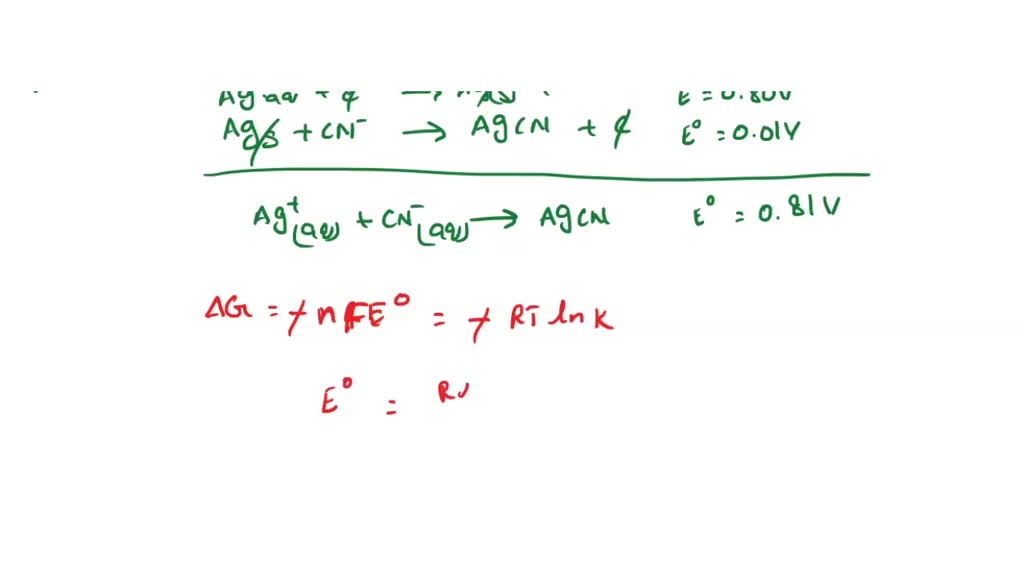 E = 0.80V
Ag(s) + CN⁻ → AgCN + e E⁰ = 0.01V
Ag⁺(aq) + CN⁻(aq) → AgCN E⁰ = 0.81V
ΔG = -nFE⁰ = -RT ln K
E⁰ = R